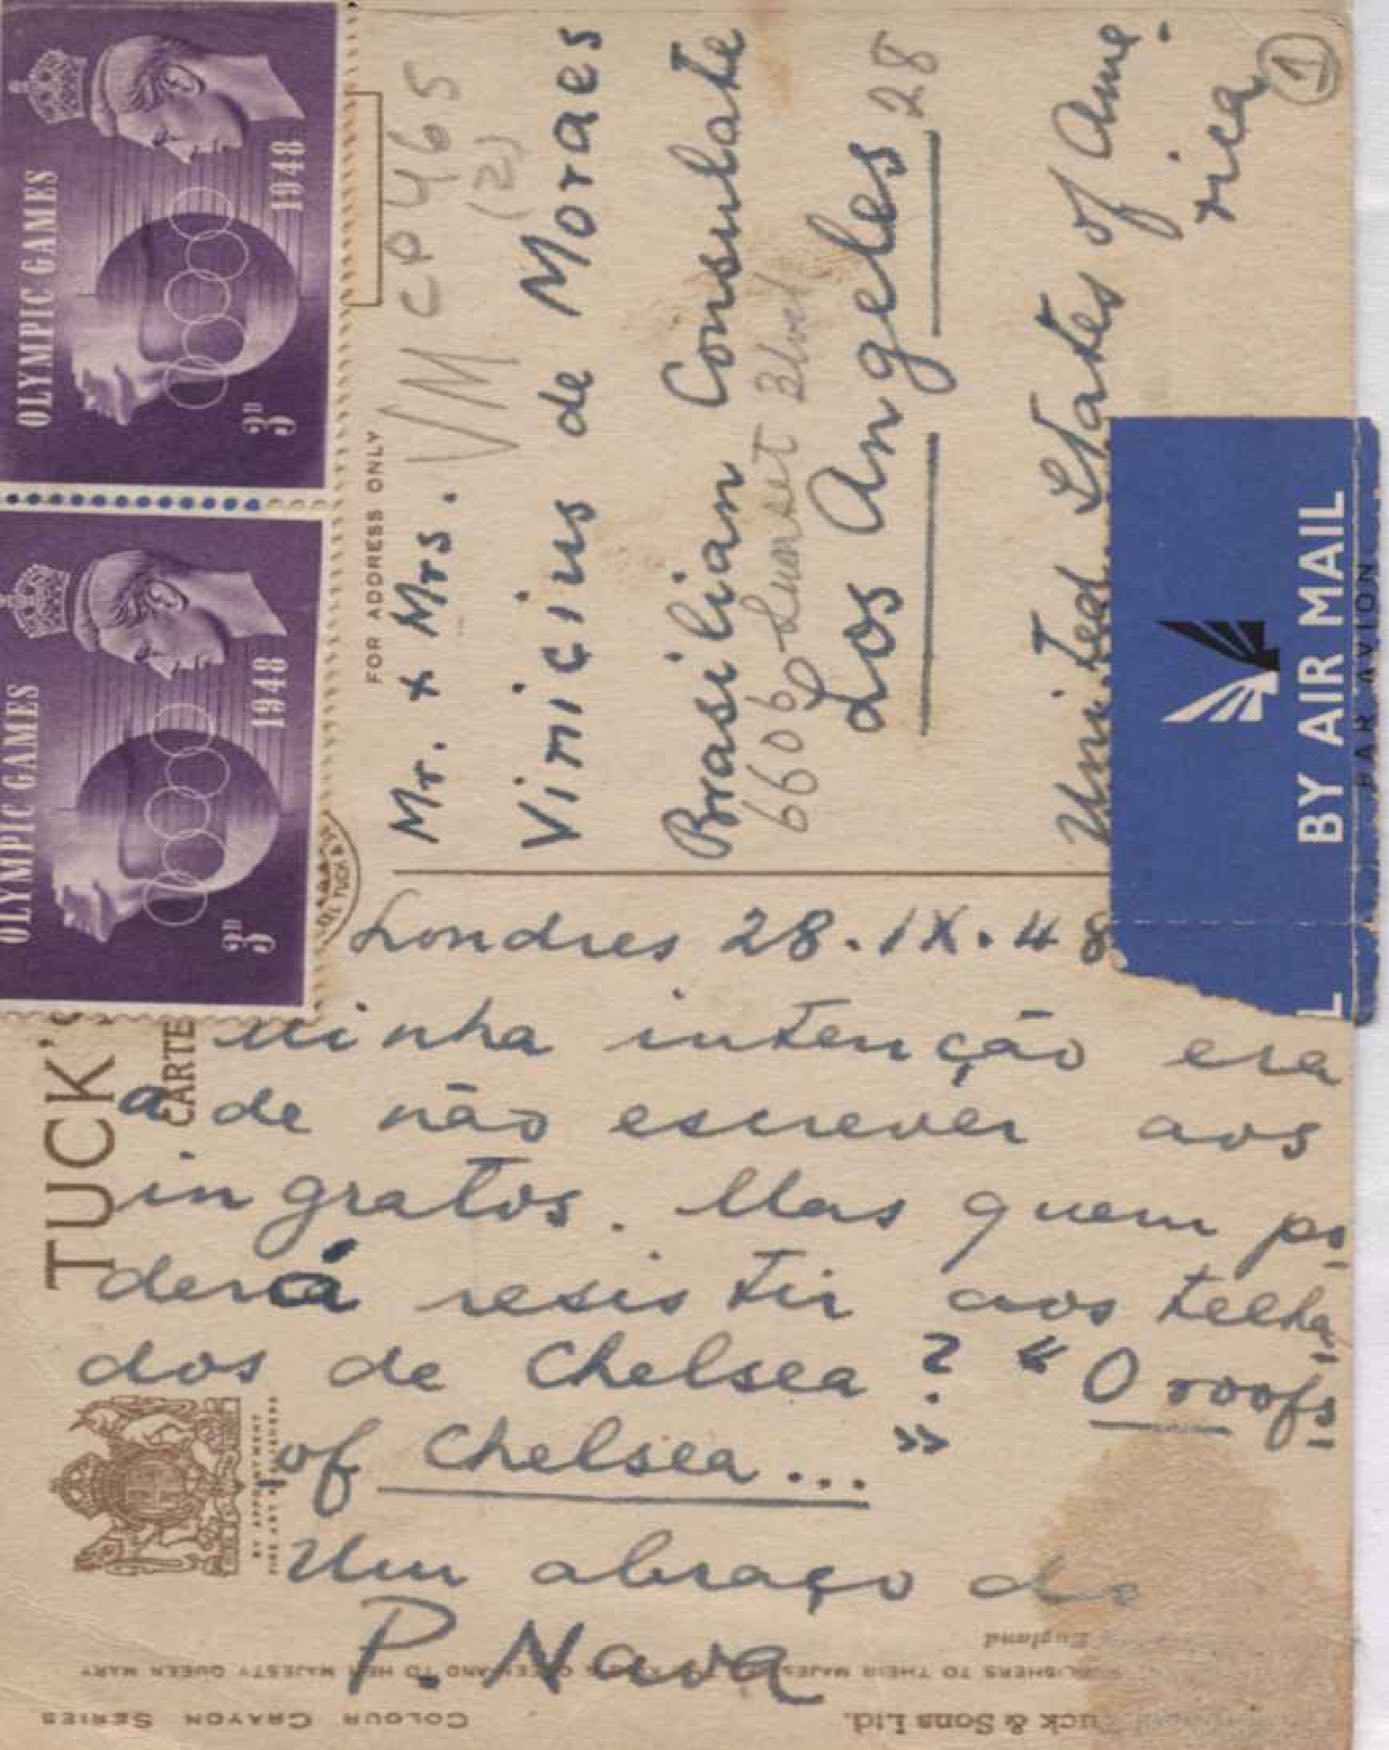 OLYMPIC GAMES
1948
3D
OLYMPIC GAMES
1948
3D
TUCK'S
CARTE
FOR ADDRESS ONLY
VM CP 465
(2)
1
Mr. + Mrs.
Vinicius de Moraes
Brasilian Consulate
6606 Sunset Blvd
Los Angeles 28
United States of Ame-
rica
BY AIR MAIL
PAR AVION
L
Londres 28.IX.48
Minha intenção era
a de não escrever aos
ingratos. Mas quem po-
derá resistir aos telha-
dos de Chelsea? "O roofs
of Chelsea..."
Um abraço de
P. Nava
BY APPOINTMENT
FINE ART PUBLISHERS
PUBLISHERS TO THEIR MAJESTIES THE KING & QUEEN AND TO HER MAJESTY QUEEN MARY
England
uck & Sons Ltd.
COLOUR CRAYON SERIES